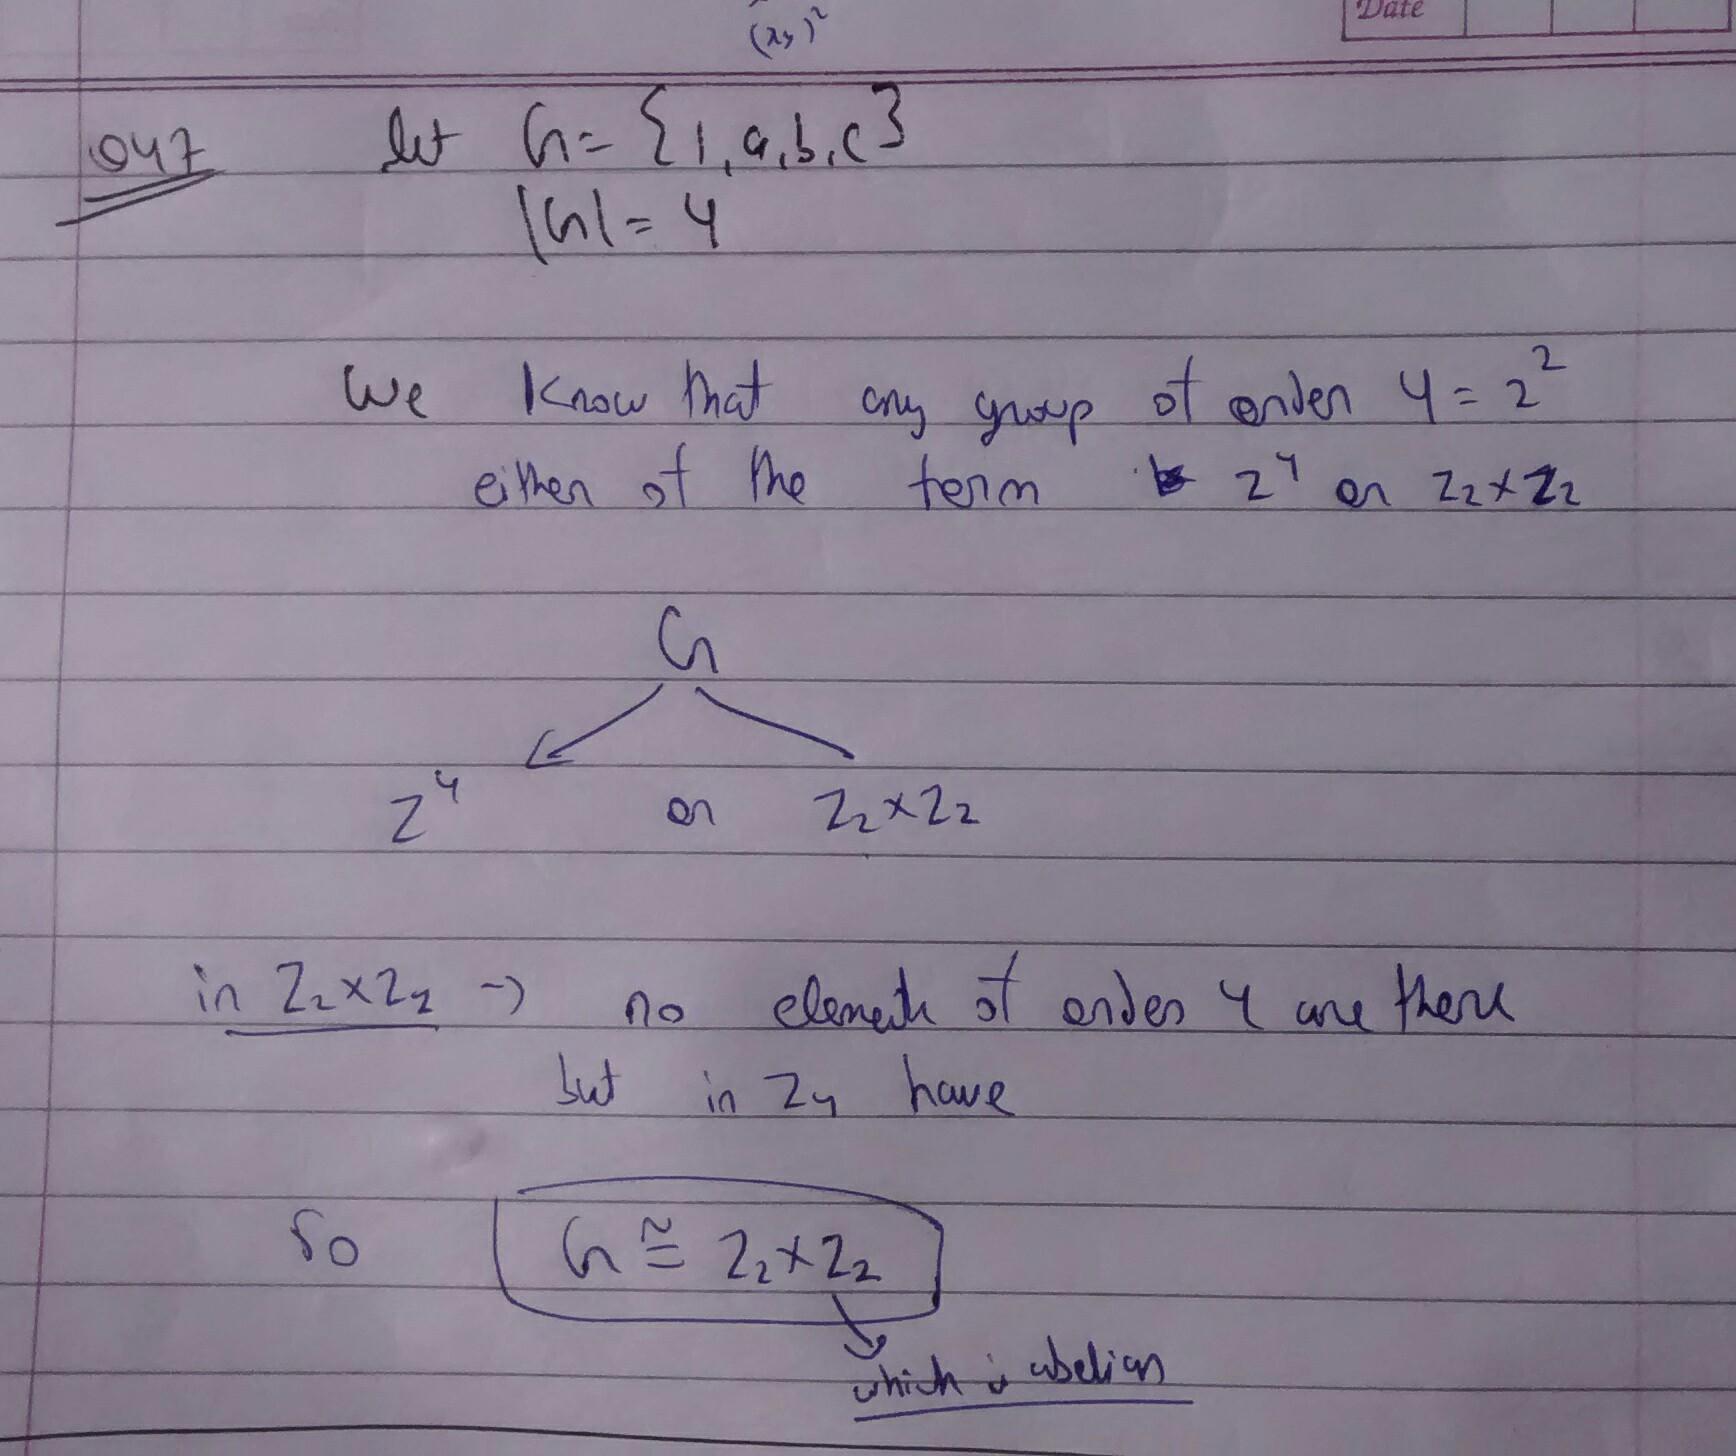 (xy)²
Date
Q47 let G = {1, a, b, c}
|G| = 4
We know that any group of order 4 = 2²
either of the form Z⁴ or Z₂×Z₂
G
Z⁴ or Z₂×Z₂
in Z₂×Z₂ → no elements of order 4 are there
but in Z₄ have
So G ≅ Z₂×Z₂
which is abelian